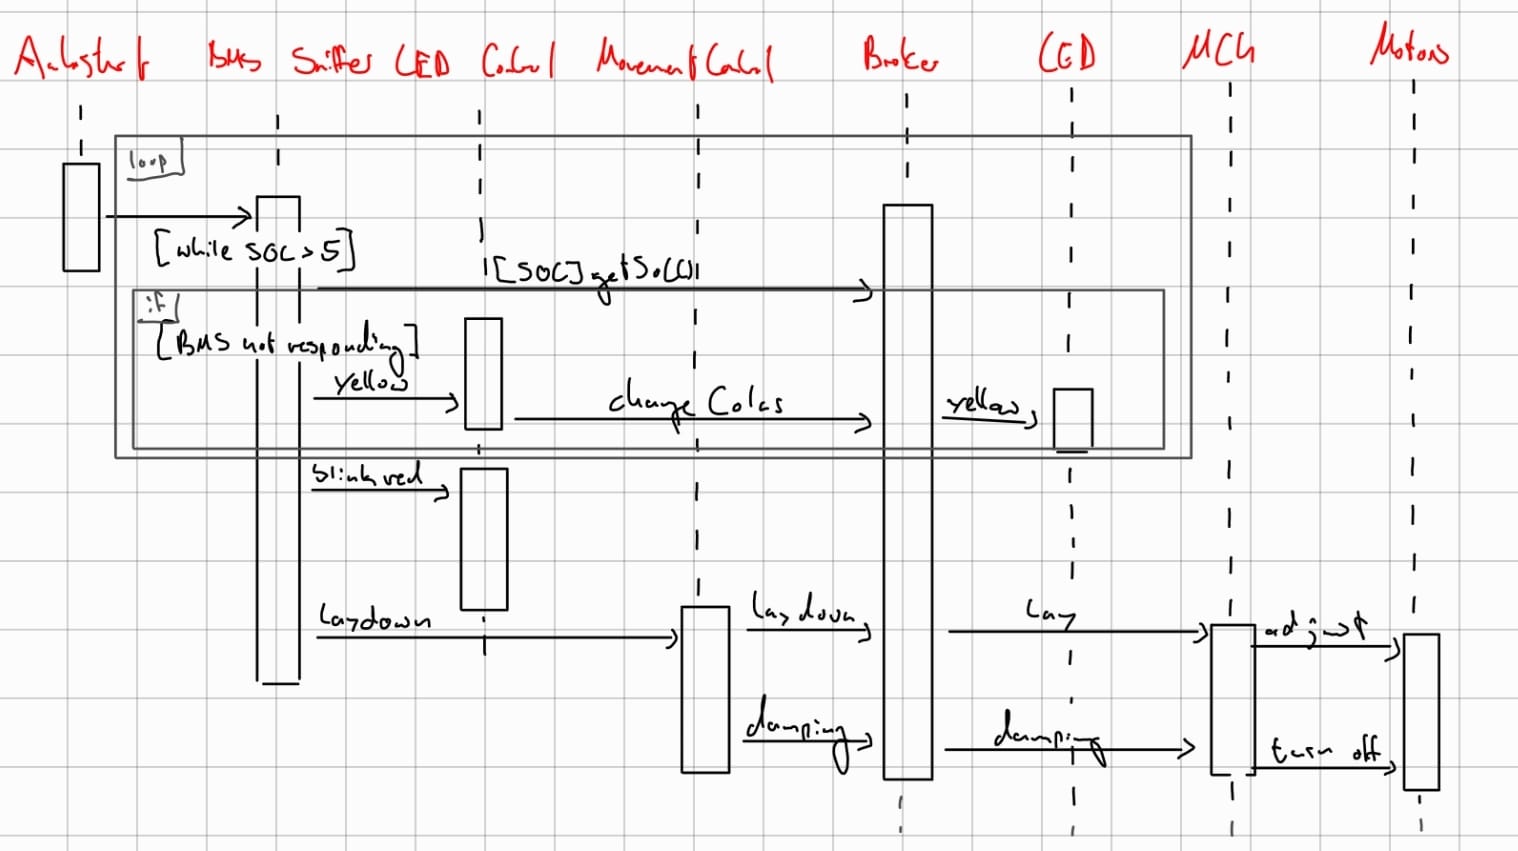 Autostart BMS Sniffer LED Control Movement Control Broker LED MCU Motors
loop
[while SOC > 5]
[SOC] getSoC()
if
[BMS not responding]
yellow
change Color
yellow
blink red
Laydown
Laydown
Lay
adjust
damping
damping
turn off